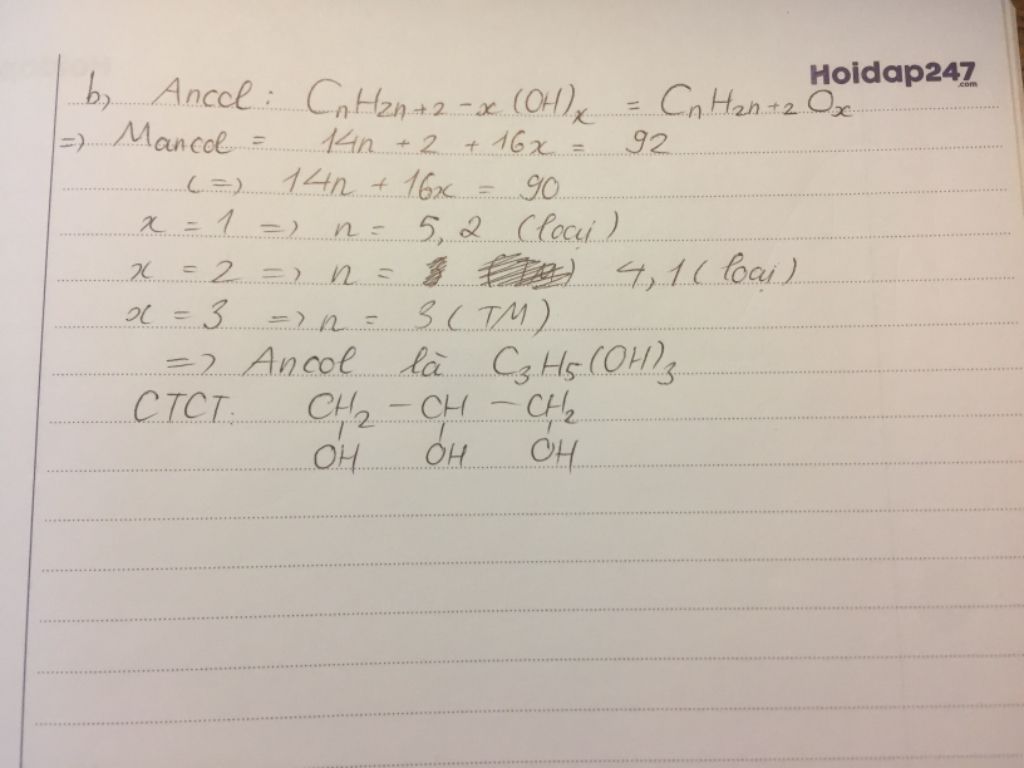 Hoidap247
.com
b, Ancol: CnH2n+2-x(OH)x = CnH2n+2Ox
=> Mancol = 14n + 2 + 16x = 92
(=) 14n + 16x = 90
x = 1 => n = 5,2 (loại)
x = 2 => n = 4,1 (loại)
x = 3 => n = 3 (TM)
=> Ancol là C3H5(OH)3
CTCT: CH2 – CH – CH2
OH OH OH